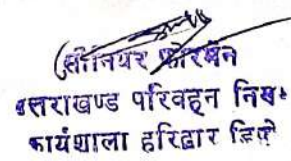 (सीनियर फोरमैन
उत्तराखण्ड परिवहन निग॰
कार्यशाला हरिद्वार डिपो